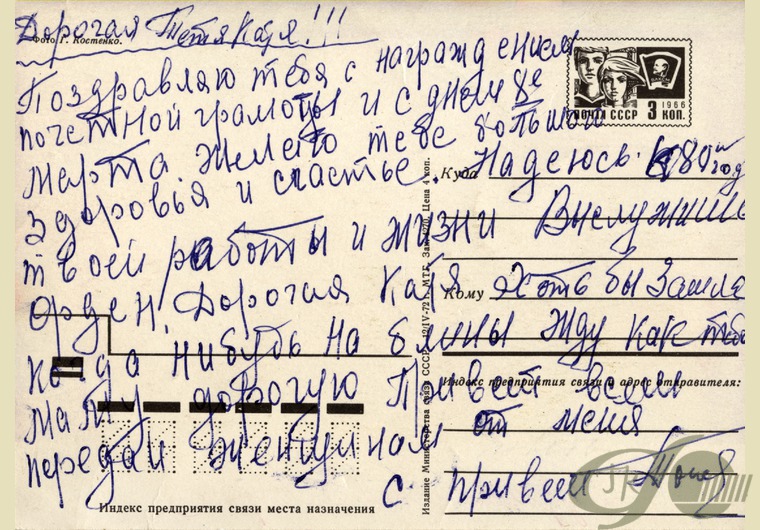 Дорогая Тетя Катя!!!
Фото Г. Костенко.
Поздравляю тебя с награждением
почетной грамоты и с днем 8е
Марта. Желаю тебе большой
Здоровья и счастье. Надеюсь к 80й год
твоей работы и жизни Выслужишь
Орден, Дорогая Катя Хотя бы Зашла
когда нибудь на блины жду как тебя
Мату дорогую Привет всем
передай женщинам от меня
с привет Толя
ПОЧТА СССР 3 КОП.
1966
Куда
Кому
Индекс предприятия связи и адрес отправителя:
Издание Министерства связи СССР. 12/IV-72 г. МТГ. Зак. Цена 4 коп.
Индекс предприятия связи места назначения